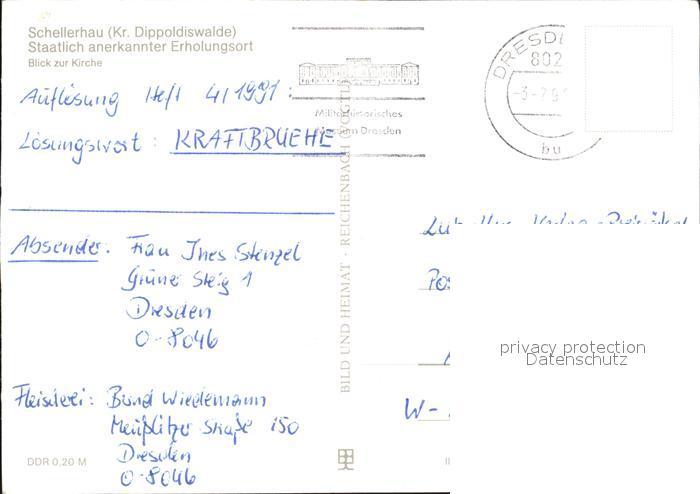 Schellerhau (Kr. Dippoldiswalde)
Staatlich anerkannter Erholungsort
Blick zur Kirche
Auflösung Heft 4/1991:
Lösungswort: KRAFTBRUEHE
Militärhistorisches
Museum Dresden
DRESDE
802
-3.-7.9
bu
Absender: Frau Ines Stenzel
Grüner Steig 1
Dresden
O-8046
Fleischerei: Bernd Wiedemann
Meußlitzer Straße 150
Dresden
O-8046
BILD UND HEIMAT · REICHENBACH (VOGTL)
W-
privacy protection
Datenschutz
DDR 0,20 M